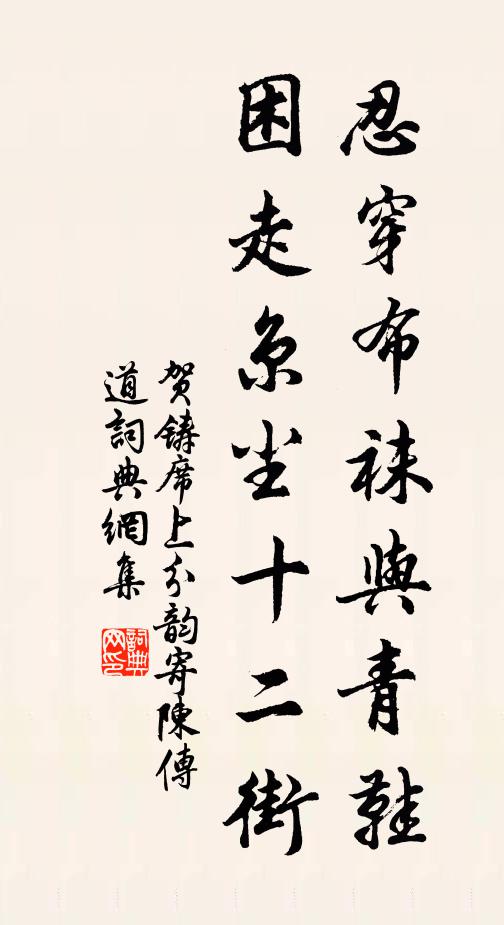 忍穿布袜與青鞋
困走京尘十二街
贺鑄席上分韵寄陳傳
道詞典網集
詞典网印